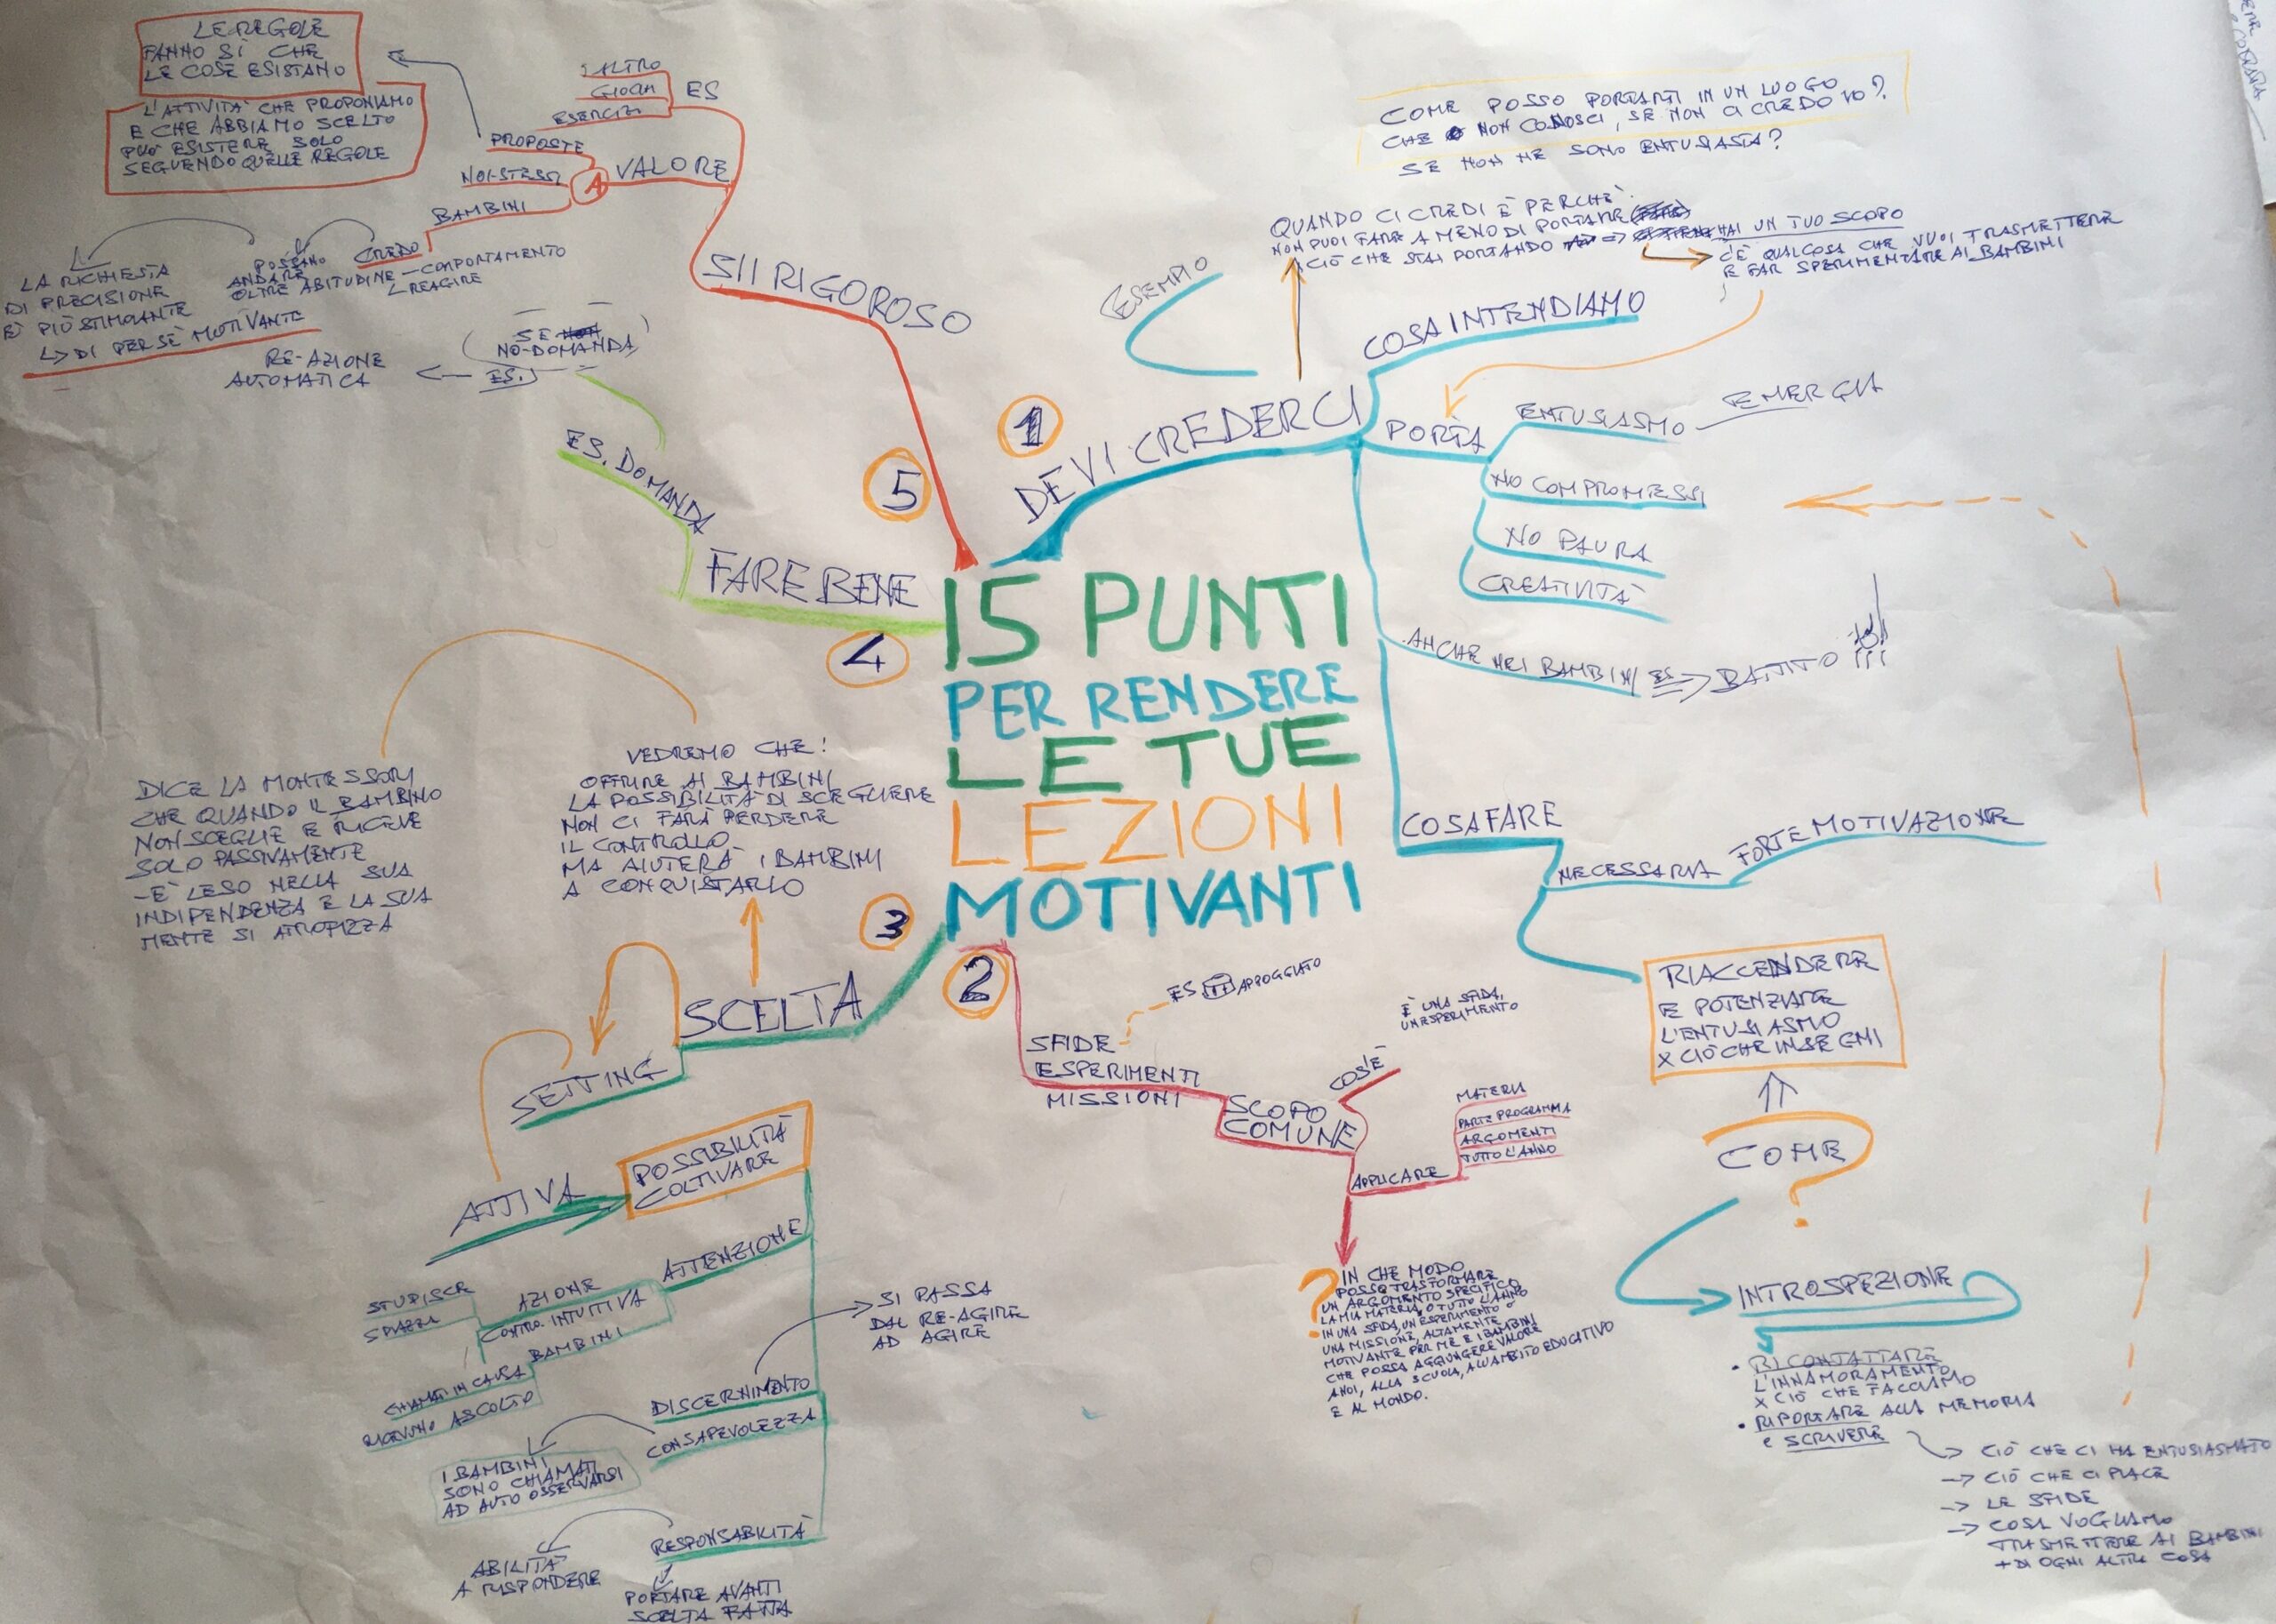 I 5 PUNTI
PER RENDERE
LE TUE
LEZIONI
MOTIVANTI
1
DEVI CREDERCI
ESEMPIO
COME POSSO PORTARTI IN UN LUOGO
CHE NON CONOSCI, SE NON CI CREDO IO?
SE NON NE SONO ENTUSIASTA?
QUANDO CI CREDI È PERCHÈ
NON PUOI FARE A MENO DI PORTARE
CIÒ CHE STAI PORTANDO
HAI UN TUO SCOPO
C'È QUALCOSA CHE VUOI TRASMETTERE
E FAR SPERIMENTARE AI BAMBINI
COSA INTENDIAMO
PORTA
ENTUSIASMO
ENERGIA
NO COMPROMESSI
NO PAURA
CREATIVITÀ
ANCHE NEI BAMBINI ES => BATTITO
COSA FARE
NECESSARIA
FORTE MOTIVAZIONE
RIACCENDERE
E POTENZIARE
L'ENTUSIASMO
X CIÒ CHE INSEGNI
COME
?
INTROSPEZIONE
• RICONTATTARE
L'INNAMORAMENTO
X CIÒ CHE FACCIAMO
• RIPORTARE ALLA MEMORIA
e SCRIVERE
-> CIÒ CHE CI HA ENTUSIASMATO
-> CIÒ CHE CI PIACE
-> LE SFIDE
-> COSA VOGLIAMO
TRASMETTERE AI BAMBINI
+ DI OGNI ALTRA COSA
2
SFIDE
ESPERIMENTI
MISSIONI
ES
APPOGGIATO
SCOPO
COMUNE
COS'È
È UNA SFIDA,
UN ESPERIMENTO
APPLICARE
MATERIA
PARTE PROGRAMMA
ARGOMENTI
TUTTO L'ANNO
?
IN CHE MODO
POSSO TRASFORMARE
UN ARGOMENTO SPECIFICO
LA MIA MATERIA, O TUTTO L'ANNO
IN UNA SFIDA, UN ESPERIMENTO O
UNA MISSIONE, ALTAMENTE
MOTIVANTE PER ME E I BAMBINI
CHE POSSA AGGIUNGERE VALORE
A NOI, ALLA SCUOLA, ALL'AMBITO EDUCATIVO
E AL MONDO.
3
SCELTA
VEDREMO CHE!
OFFRIRE AI BAMBINI
LA POSSIBILITÀ DI SCEGLIERE
NON CI FARÀ PERDERE
IL CONTROLLO
MA AIUTERÀ I BAMBINI
A CONQUISTARLO
DICE LA MONTESSORI
CHE QUANDO IL BAMBINO
NON SCEGLIE E RICEVE
SOLO PASSIVAMENTE
- È LESO NELLA SUA
INDIPENDENZA E LA SUA
MENTE SI ATROFIZZA
SETTING
ATTIVA
POSSIBILITÀ
COLTIVARE
ATTENZIONE
AZIONE
CONTRO INTUITIVA
BAMBINI
STUPISCE
SPIAZZA
CHIAMATI IN CAUSA
RICEVONO ASCOLTO
DISCERNIMENTO
SI PASSA
DAL RE-AGIRE
AD AGIRE
CONSAPEVOLEZZA
I BAMBINI
SONO CHIAMATI
AD AUTO OSSERVARSI
RESPONSABILITÀ
ABILITÀ
A RISPONDERE
PORTARE AVANTI
SCELTA FATTA
4
FARE BENE
ES. DOMANDA
SE
NO-DOMANDA
ES.
RE-AZIONE
AUTOMATICA
5
SII RIGOROSO
VALORE
ES
ALTRO
GIOCHI
ESERCIZI
A
PROPOSTE
NOI-STESSI
BAMBINI
LE REGOLE
FANNO SÌ CHE
LE COSE ESISTANO
L'ATTIVITÀ CHE PROPONIAMO
E CHE ABBIAMO SCELTO
PUÒ ESISTERE SOLO
SEGUENDO QUELLE REGOLE
CREDO
POSSANO
ANDARE
OLTRE ABITUDINE
COMPORTAMENTO
REAGIRE
LA RICHIESTA
DI PRECISIONE
È PIÙ STIMOLANTE
DI PER SÈ MOTIVANTE